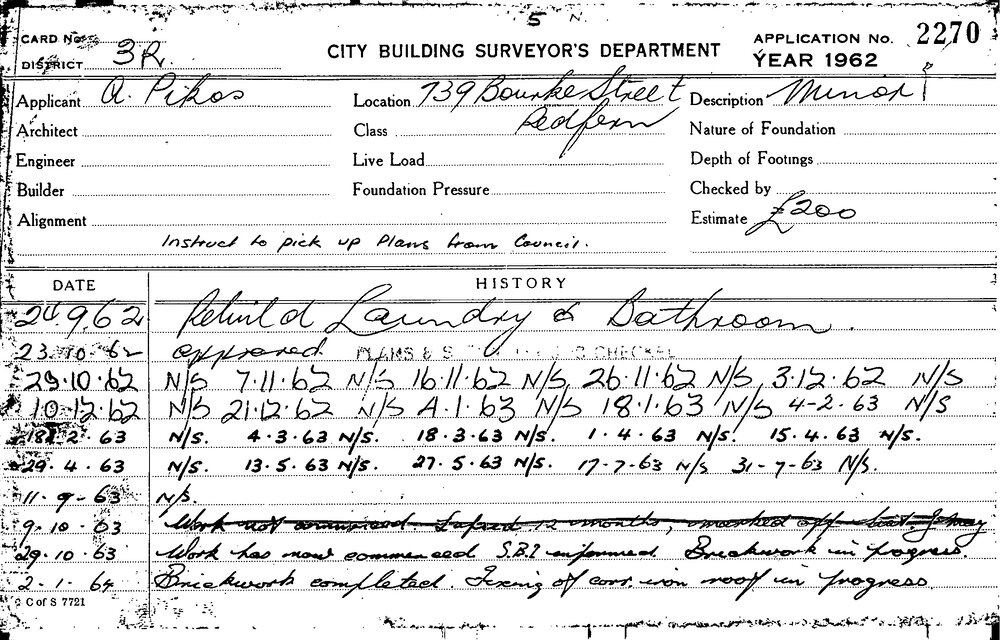 5 N.
CARD No.
DISTRICT 3R.
CITY BUILDING SURVEYOR'S DEPARTMENT
APPLICATION No. 2270
YEAR 1962
Applicant A. Pikos
Location 739 Bourke Street
Redfern
Description Minor
Architect
Class
Nature of Foundation
Engineer
Live Load
Depth of Footings
Builder
Foundation Pressure
Checked by
Alignment
Estimate £200
Instruct to pick up Plans from Council.
DATE HISTORY
24.9.62 Rebuild Laundry & Bathroom.
23.10.62 approved PLANS &
29.10.62 N/S 7.11.62 N/S 16.11.62 N/S, 26.11.62 N/S, 3.12.62 N/S
10.12.62 N/S 21.12.62 N/S 4.1.63 N/S 18.1.63 N/S 4-2.63 N/S
18.2.63 N/S. 4.3.63 N/S. 18.3.63 N/S. 1.4.63 N/S. 15.4.63 N/S.
29.4.63 N/S. 13.5.63 N/S. 27.5.63 N/S. 17-7-63 N/S 31-7-63 N/S.
11-9-63 N/S.
9.10.63 Work not commenced. Lapsed 12 months, marked off
29.10.63 Work has now commenced S.B.I informed Brickwork in progress.
2.1.64 Brickwork completed. Fixing of corr. iron roof in progress
C of S 7721